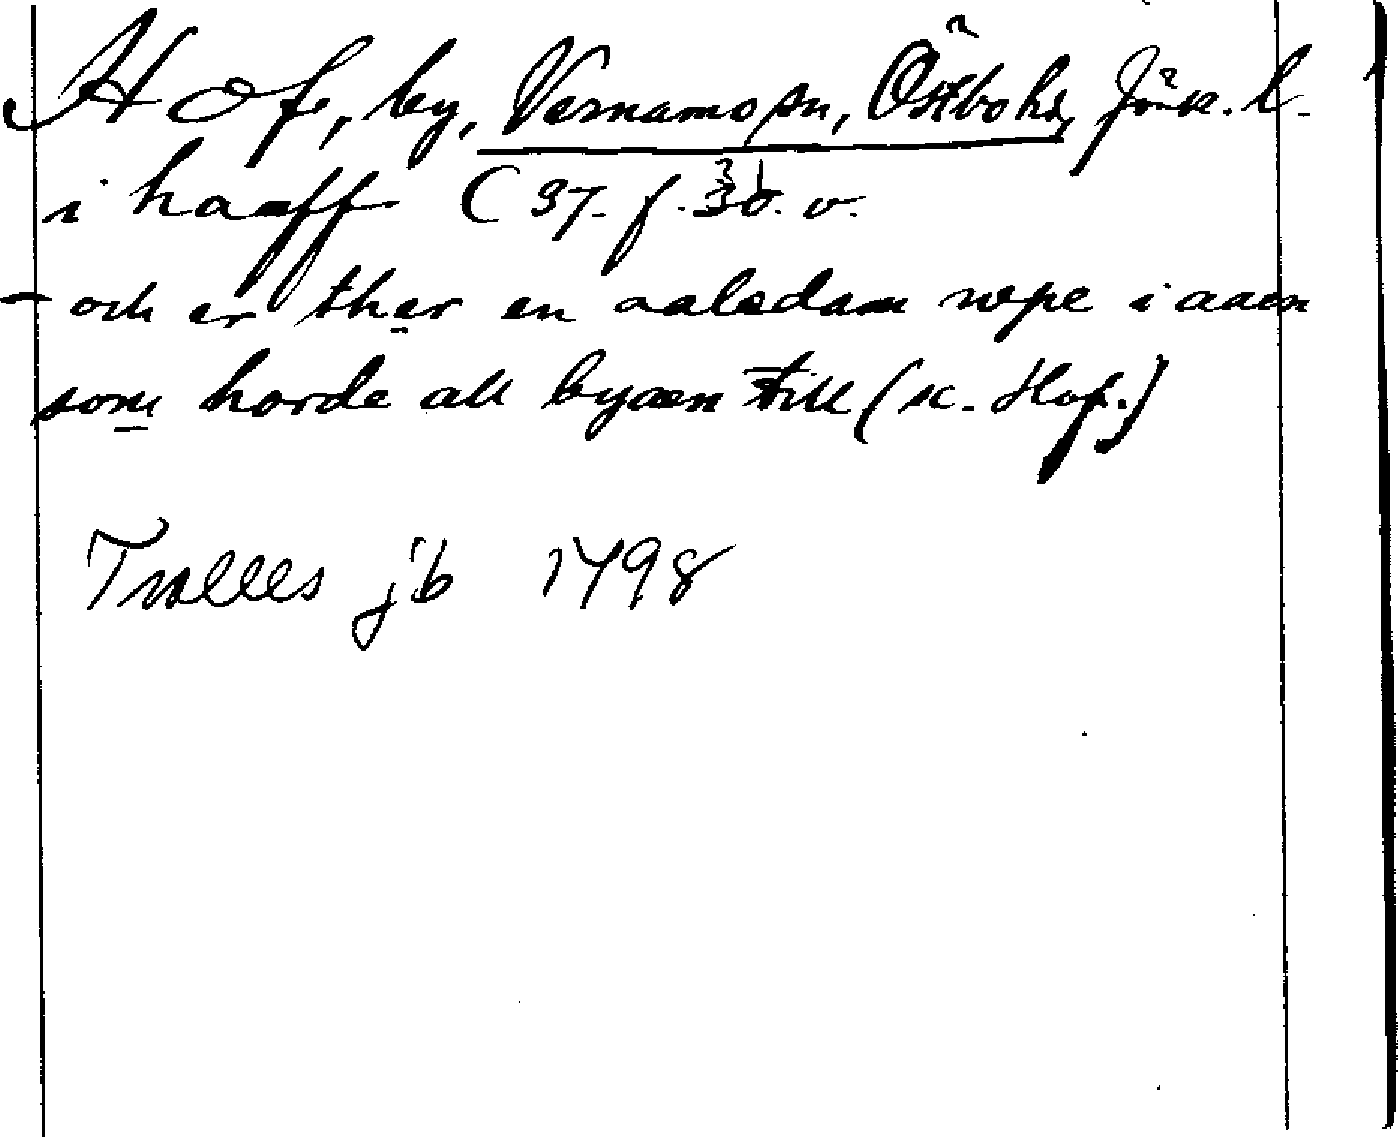 Hof, by, Vernamo sn, Östbo hd, Jönk. l.
i haaff C 37. f. 36. v.
- och er ther en aaledam nepe i aaen
som horde all byaen till (sc. Hof.)
Trolles jb 1498